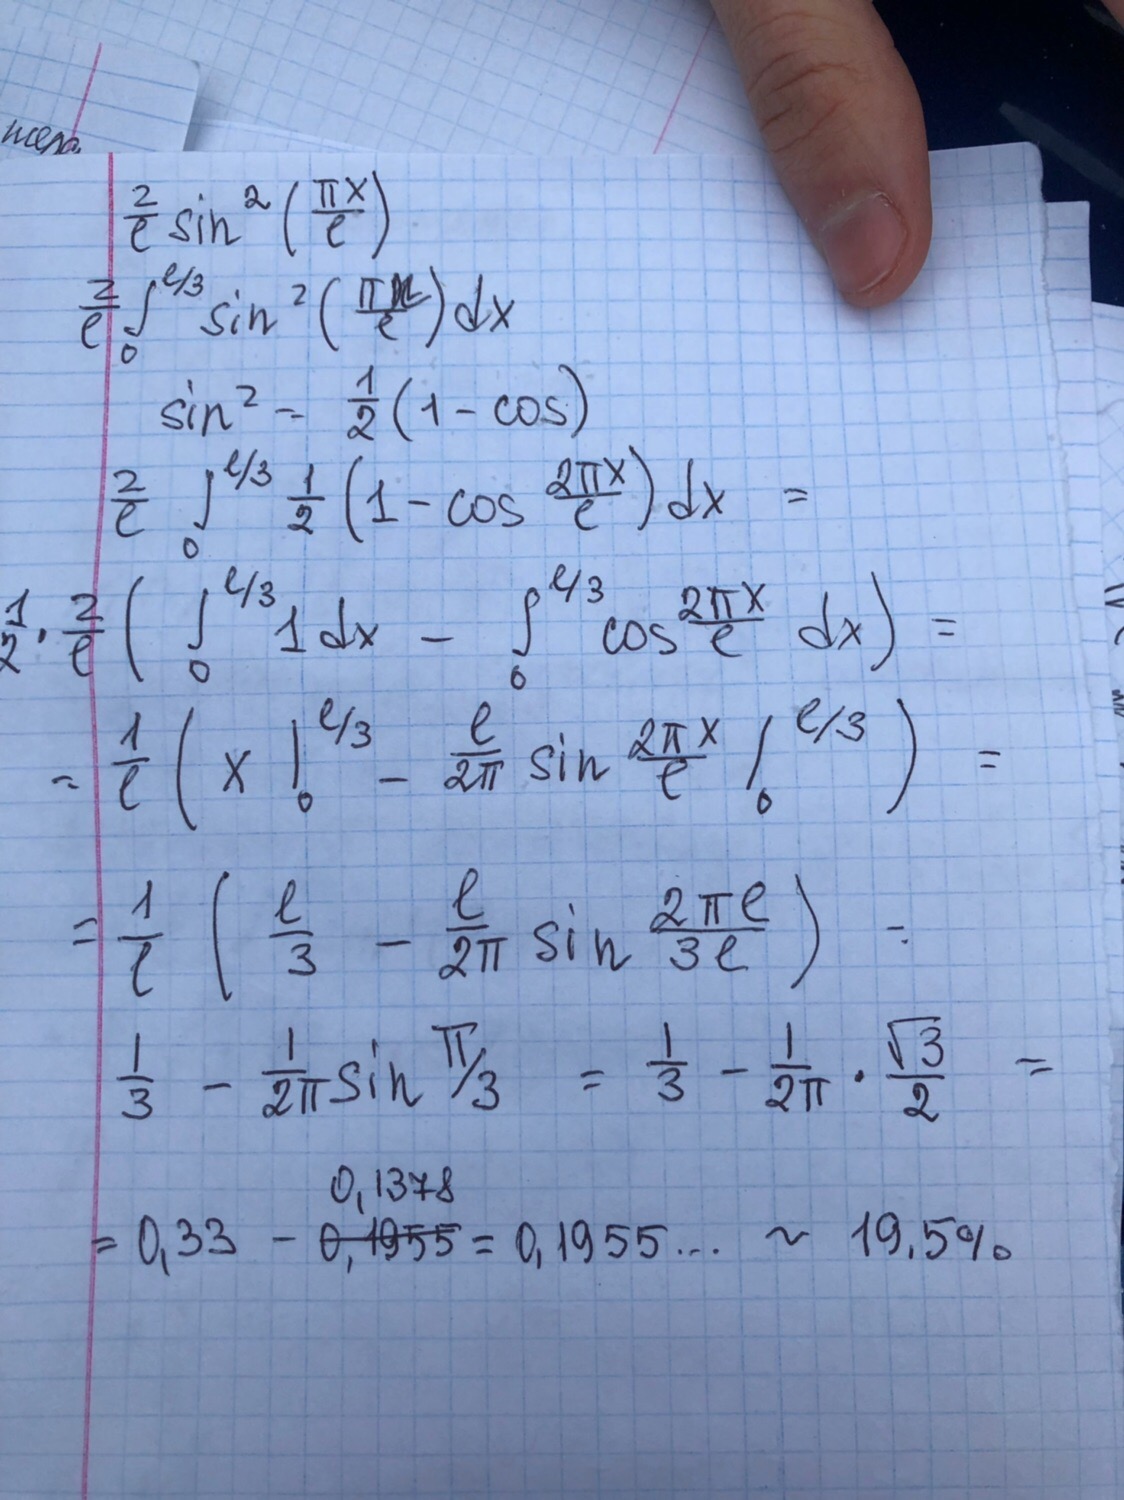 2/ℓ sin² (πx/ℓ)
2/ℓ ∫₀^(ℓ/3) sin² (πx/ℓ) dx
sin² = 1/2 (1 - cos)
2/ℓ ∫₀^(ℓ/3) 1/2 (1 - cos 2πx/ℓ) dx =
1/2 · 2/ℓ ( ∫₀^(ℓ/3) 1 dx - ∫₀^(ℓ/3) cos 2πx/ℓ dx ) =
= 1/ℓ ( x |₀^(ℓ/3) - ℓ/2π sin 2πx/ℓ |₀^(ℓ/3) ) =
= 1/ℓ ( ℓ/3 - ℓ/2π sin 2πℓ/3ℓ ) =
1/3 - 1/2π sin π/3 = 1/3 - 1/2π · √3/2 =
0,1378
= 0,33 - 0,1955 = 0,1955... ~ 19.5%